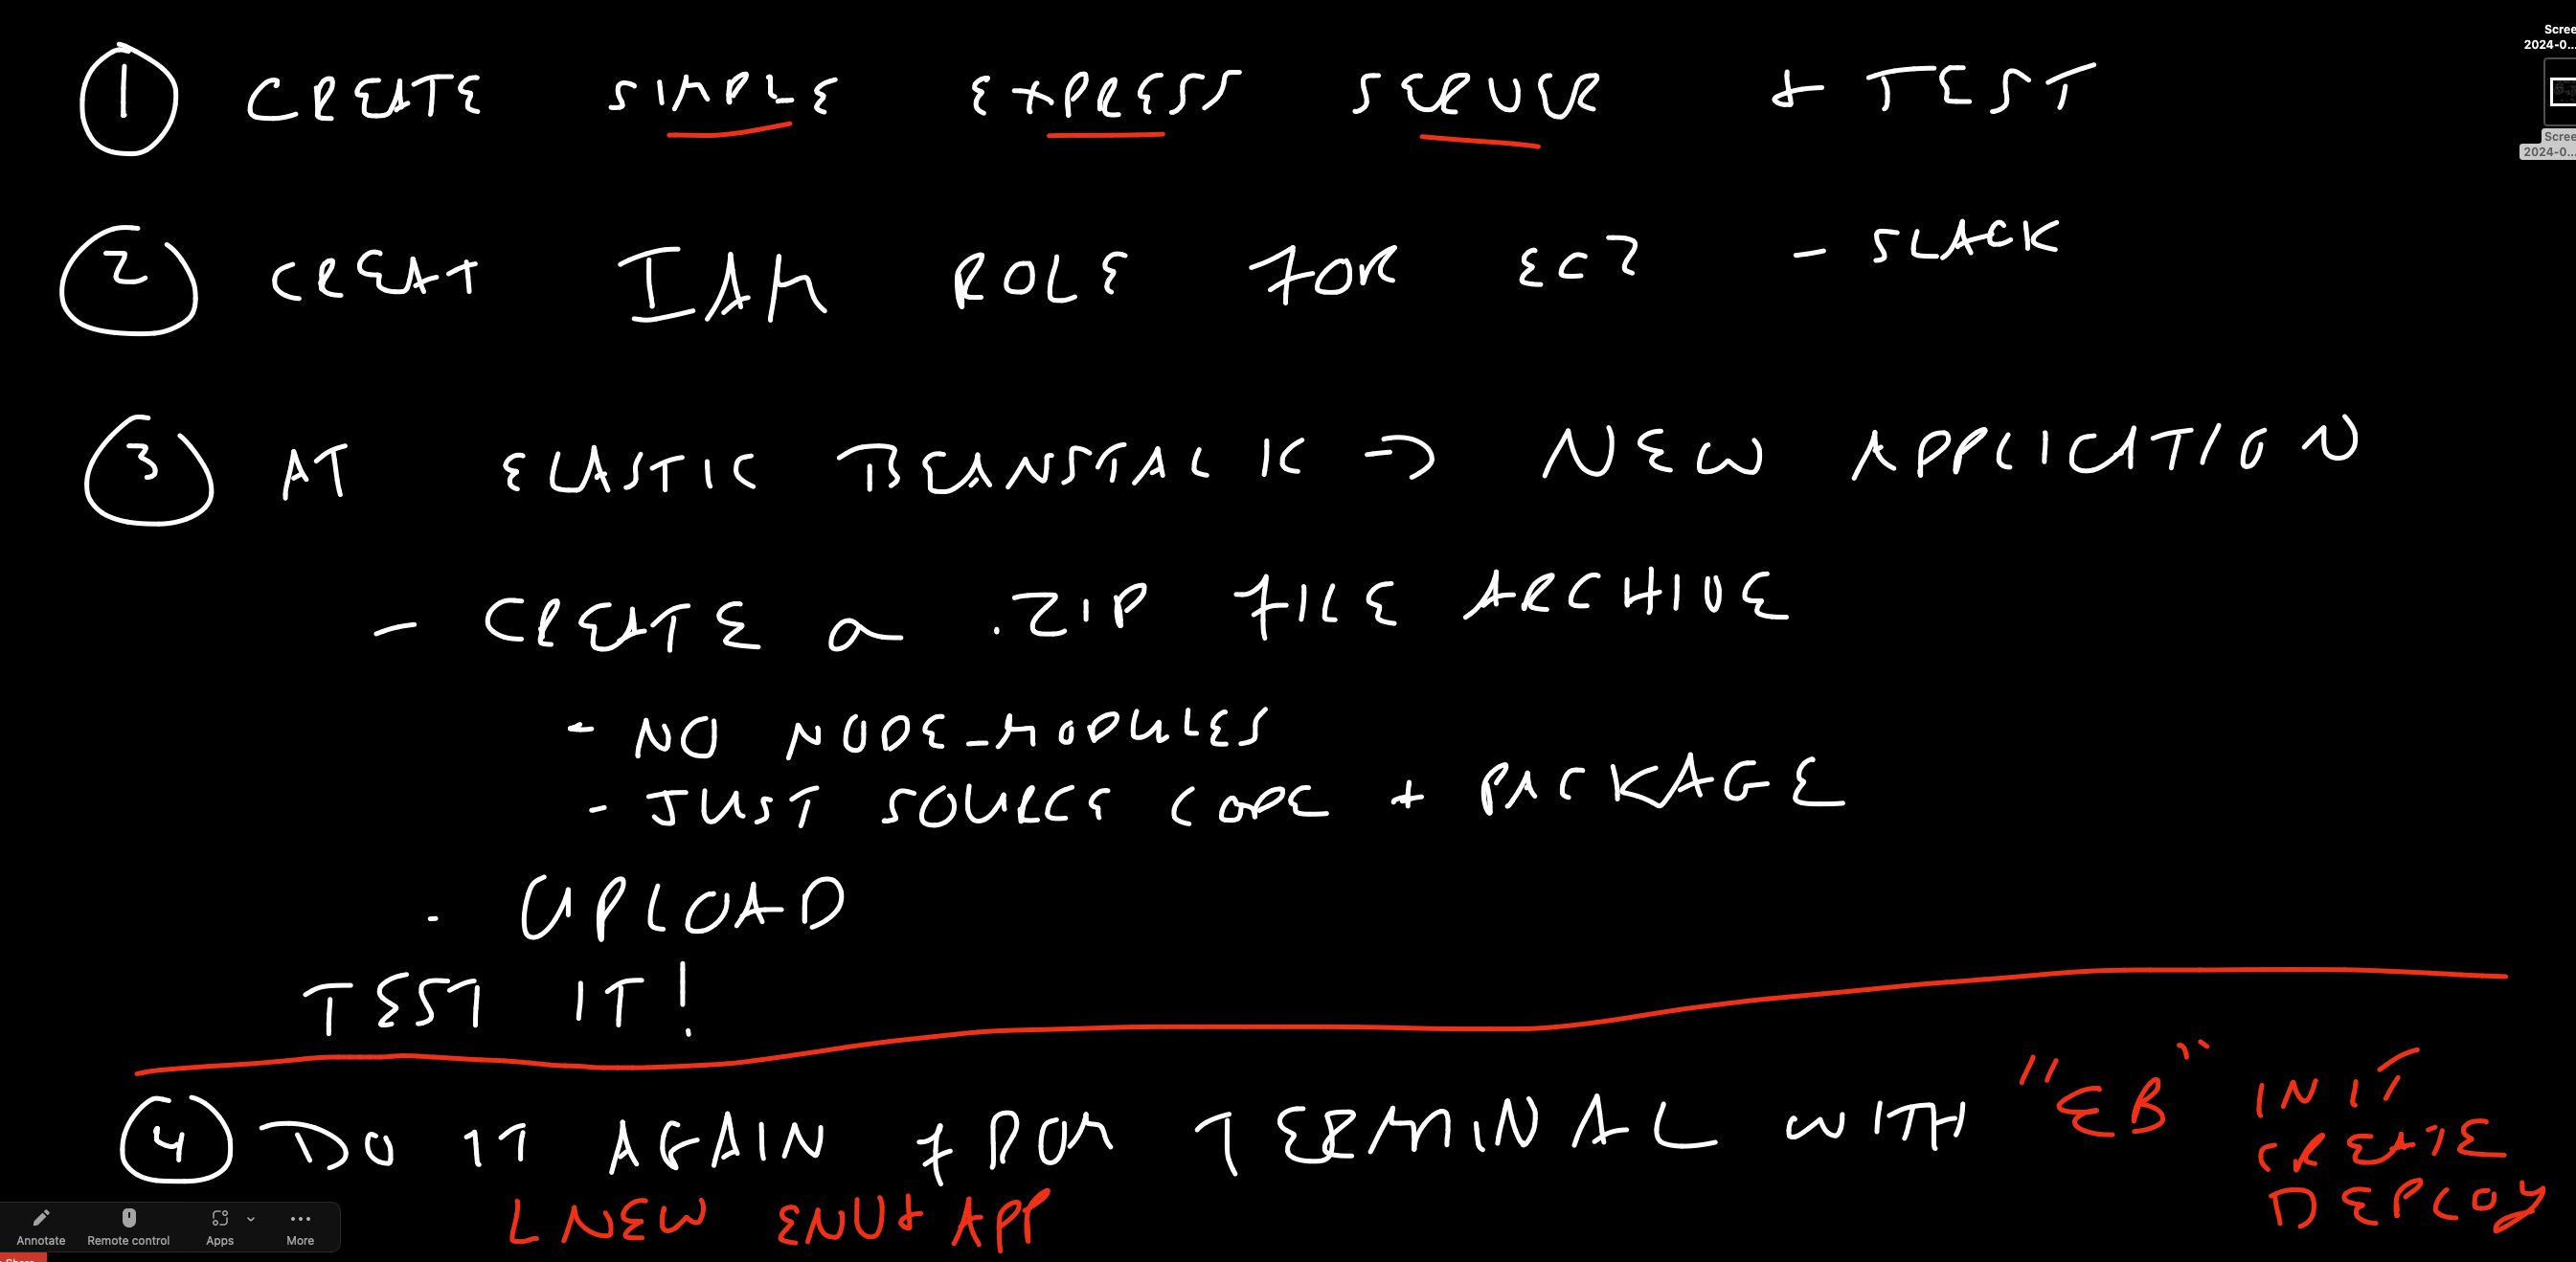 1 CREATE SIMPLE EXPRESS SERVER + TEST
2 CREAT IAM ROLE FOR EC2 - SLACK
3 AT ELASTIC BEANSTALK → NEW APPLICATION
- CREATE a .ZIP FILE ARCHIVE
- NO NODE_MODULES
- JUST SOURCE CODE + PACKAGE
- UPLOAD
TEST IT!
4 DO IT AGAIN FROM TERMINAL WITH "EB" INIT
CREATE
DEPLOY
L NEW ENV + APP
Scree
2024-0...
Scree
2024-0...
Annotate Remote control Apps More